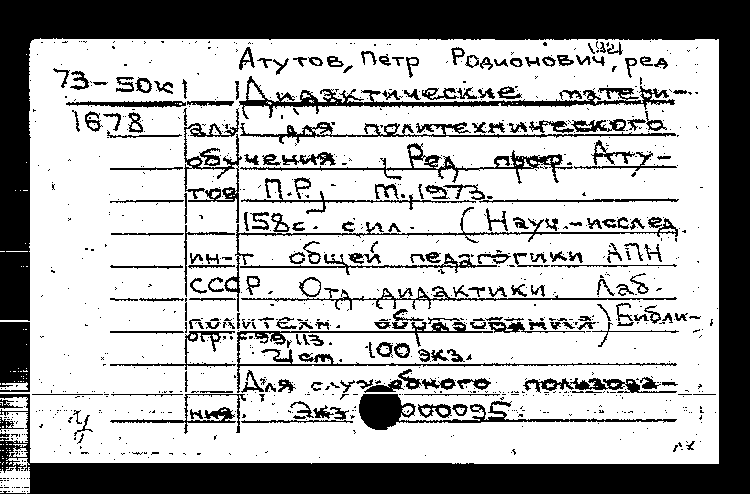 1921
Атутов, Петр Родионович, ред
73-50к Дидактические матери-
1678 алы для политехнического
обучения. [Ред. проф. Ату-
тов П.Р.] М., 1973.
158с. с ил. (Науч.-исслед.
ин-т общей педагогики АПН
СССР. Отд. дидактики. Лаб.
политехн. образования) Библи-
огр.: с.99, 113.
100 экз.
Для служебного пользова-
ния. Экз. 000095.